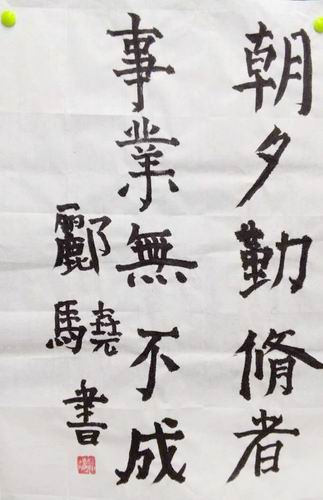 朝夕勤脩者
事業無不成
酈驍書